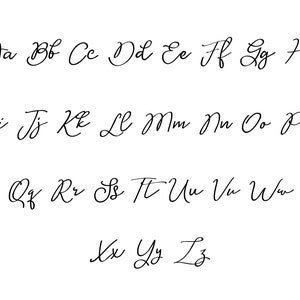 a Bb Cc Dd Ee Ff Gg H
i Jj Kk Ll Mm Nn Oo P
Qq Rr Ss Tt Uu Vv Ww
Xx Yy Zz